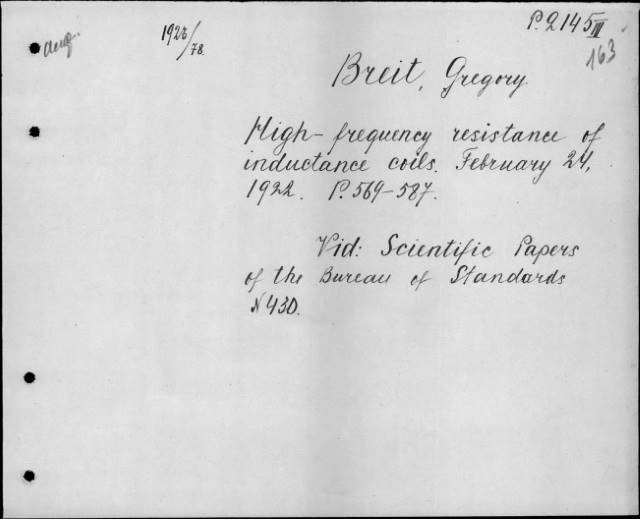 P.2145III
163
1923/78.
Breit, Gregory
High-frequency resistance of
inductance coils. February 24,
1922. P. 569-587.
Vid: Scientific Papers
of the Bureau of Standards
N430.